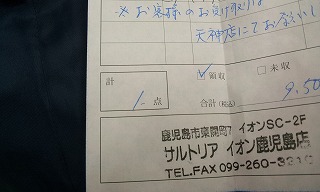 ※お客様のお受け取りは
天神店にてお
計
1 点
☑領収
□未収
合計(税込)
9.50
鹿児島市東開町7 イオンSC-2F
サルトリア イオン鹿児島店
TEL.FAX 099-260-3310